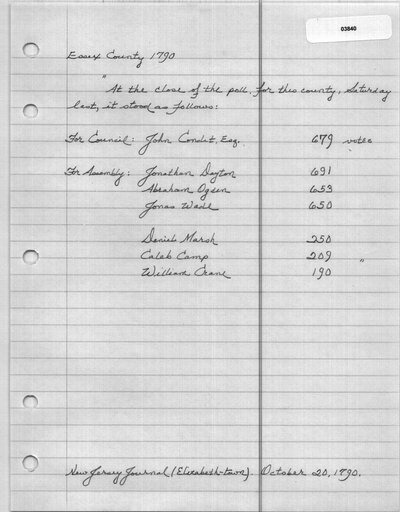 03840
Essex County 1790
"At the close of the poll, for this county, Saturday
last, it stood as follows:
For Council: John Condit, Esq. 679 votes
For Assembly: Jonathan Dayton 691
Abraham Ogden 653
Jonas Wade 650
Daniel Marsh 250
Caleb Camp 209 "
William Crane 190
New Jersey Journal (Elizabeth-town). October 20, 1790.